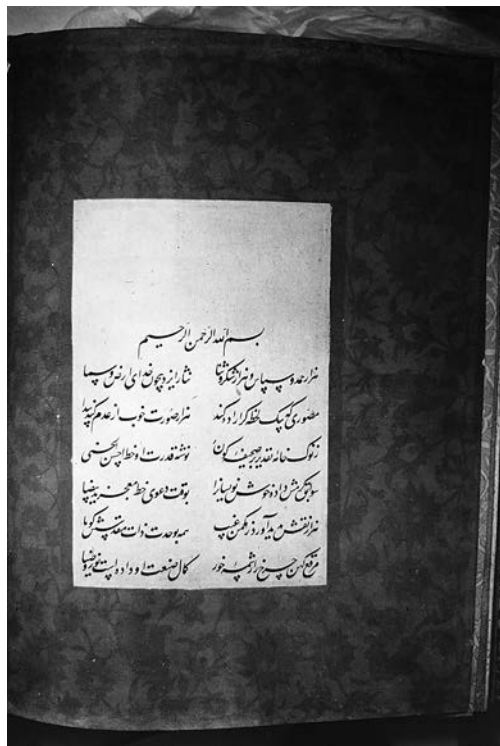 بسم الله الرحمن الرحیم
هزار حمد و سپاس و هزار شکر و ثنا نثار ایزد بیچون خدای ارض و سما
مصوری که بیک لحظه گر اراده کند هزار صورت خوب از عدم کند پیدا
ز نوک خامهٔ تقدیر بر صحیفهٔ کون نوشته قدرت او خط احسن
مشق داده خوش نویسان را بوقت دعوی خط معجز ید بیضا
هزار نقش پدید آورد ز مکمن غیب همه بوحدت ذات مقدسش گویا
مرقع کهن چرخ را ز شمسهٔ خور کمال صنعت او داده است و ضیا